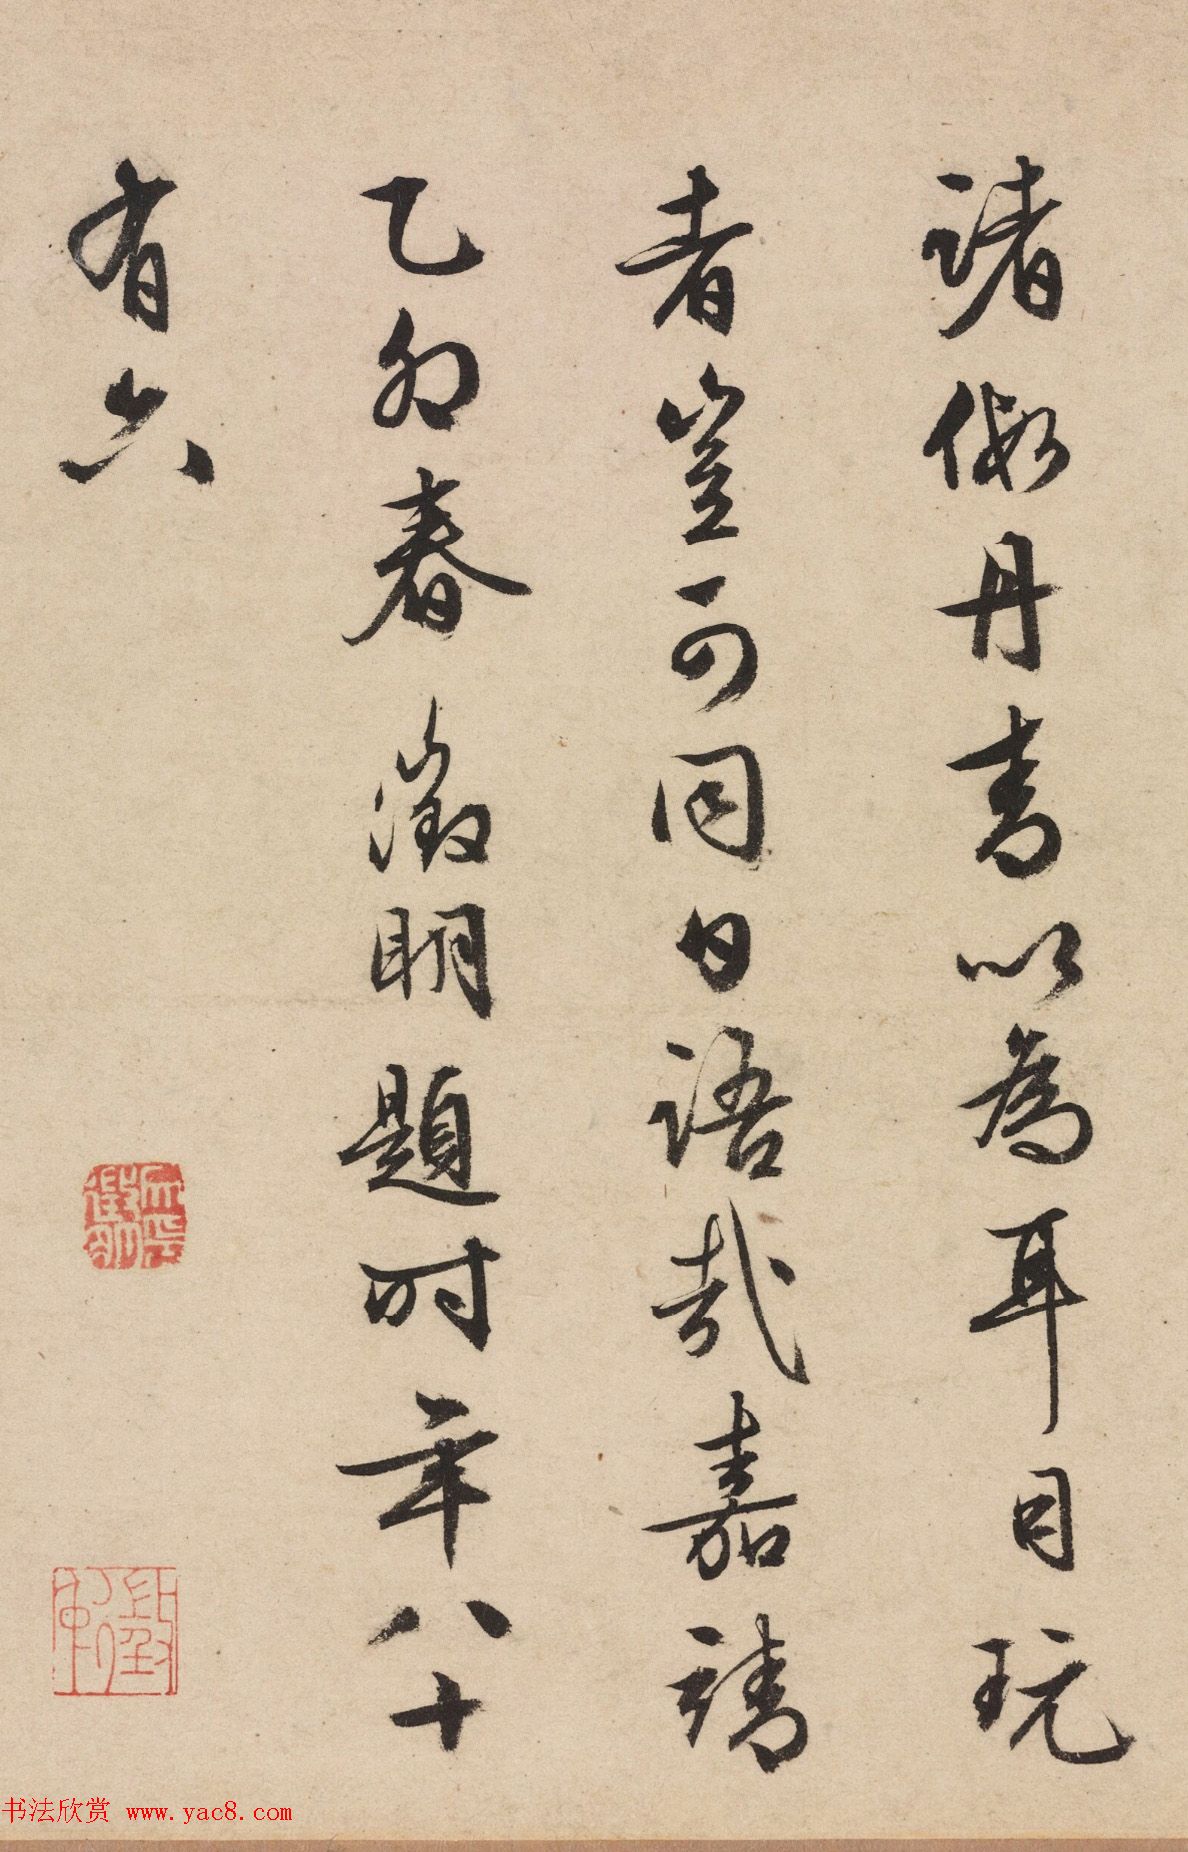 諸假丹青以為耳目玩
者豈可同日語哉嘉靖
乙卯春徵明題時年八十
有六
徵明
书法欣赏 www.yac8.com